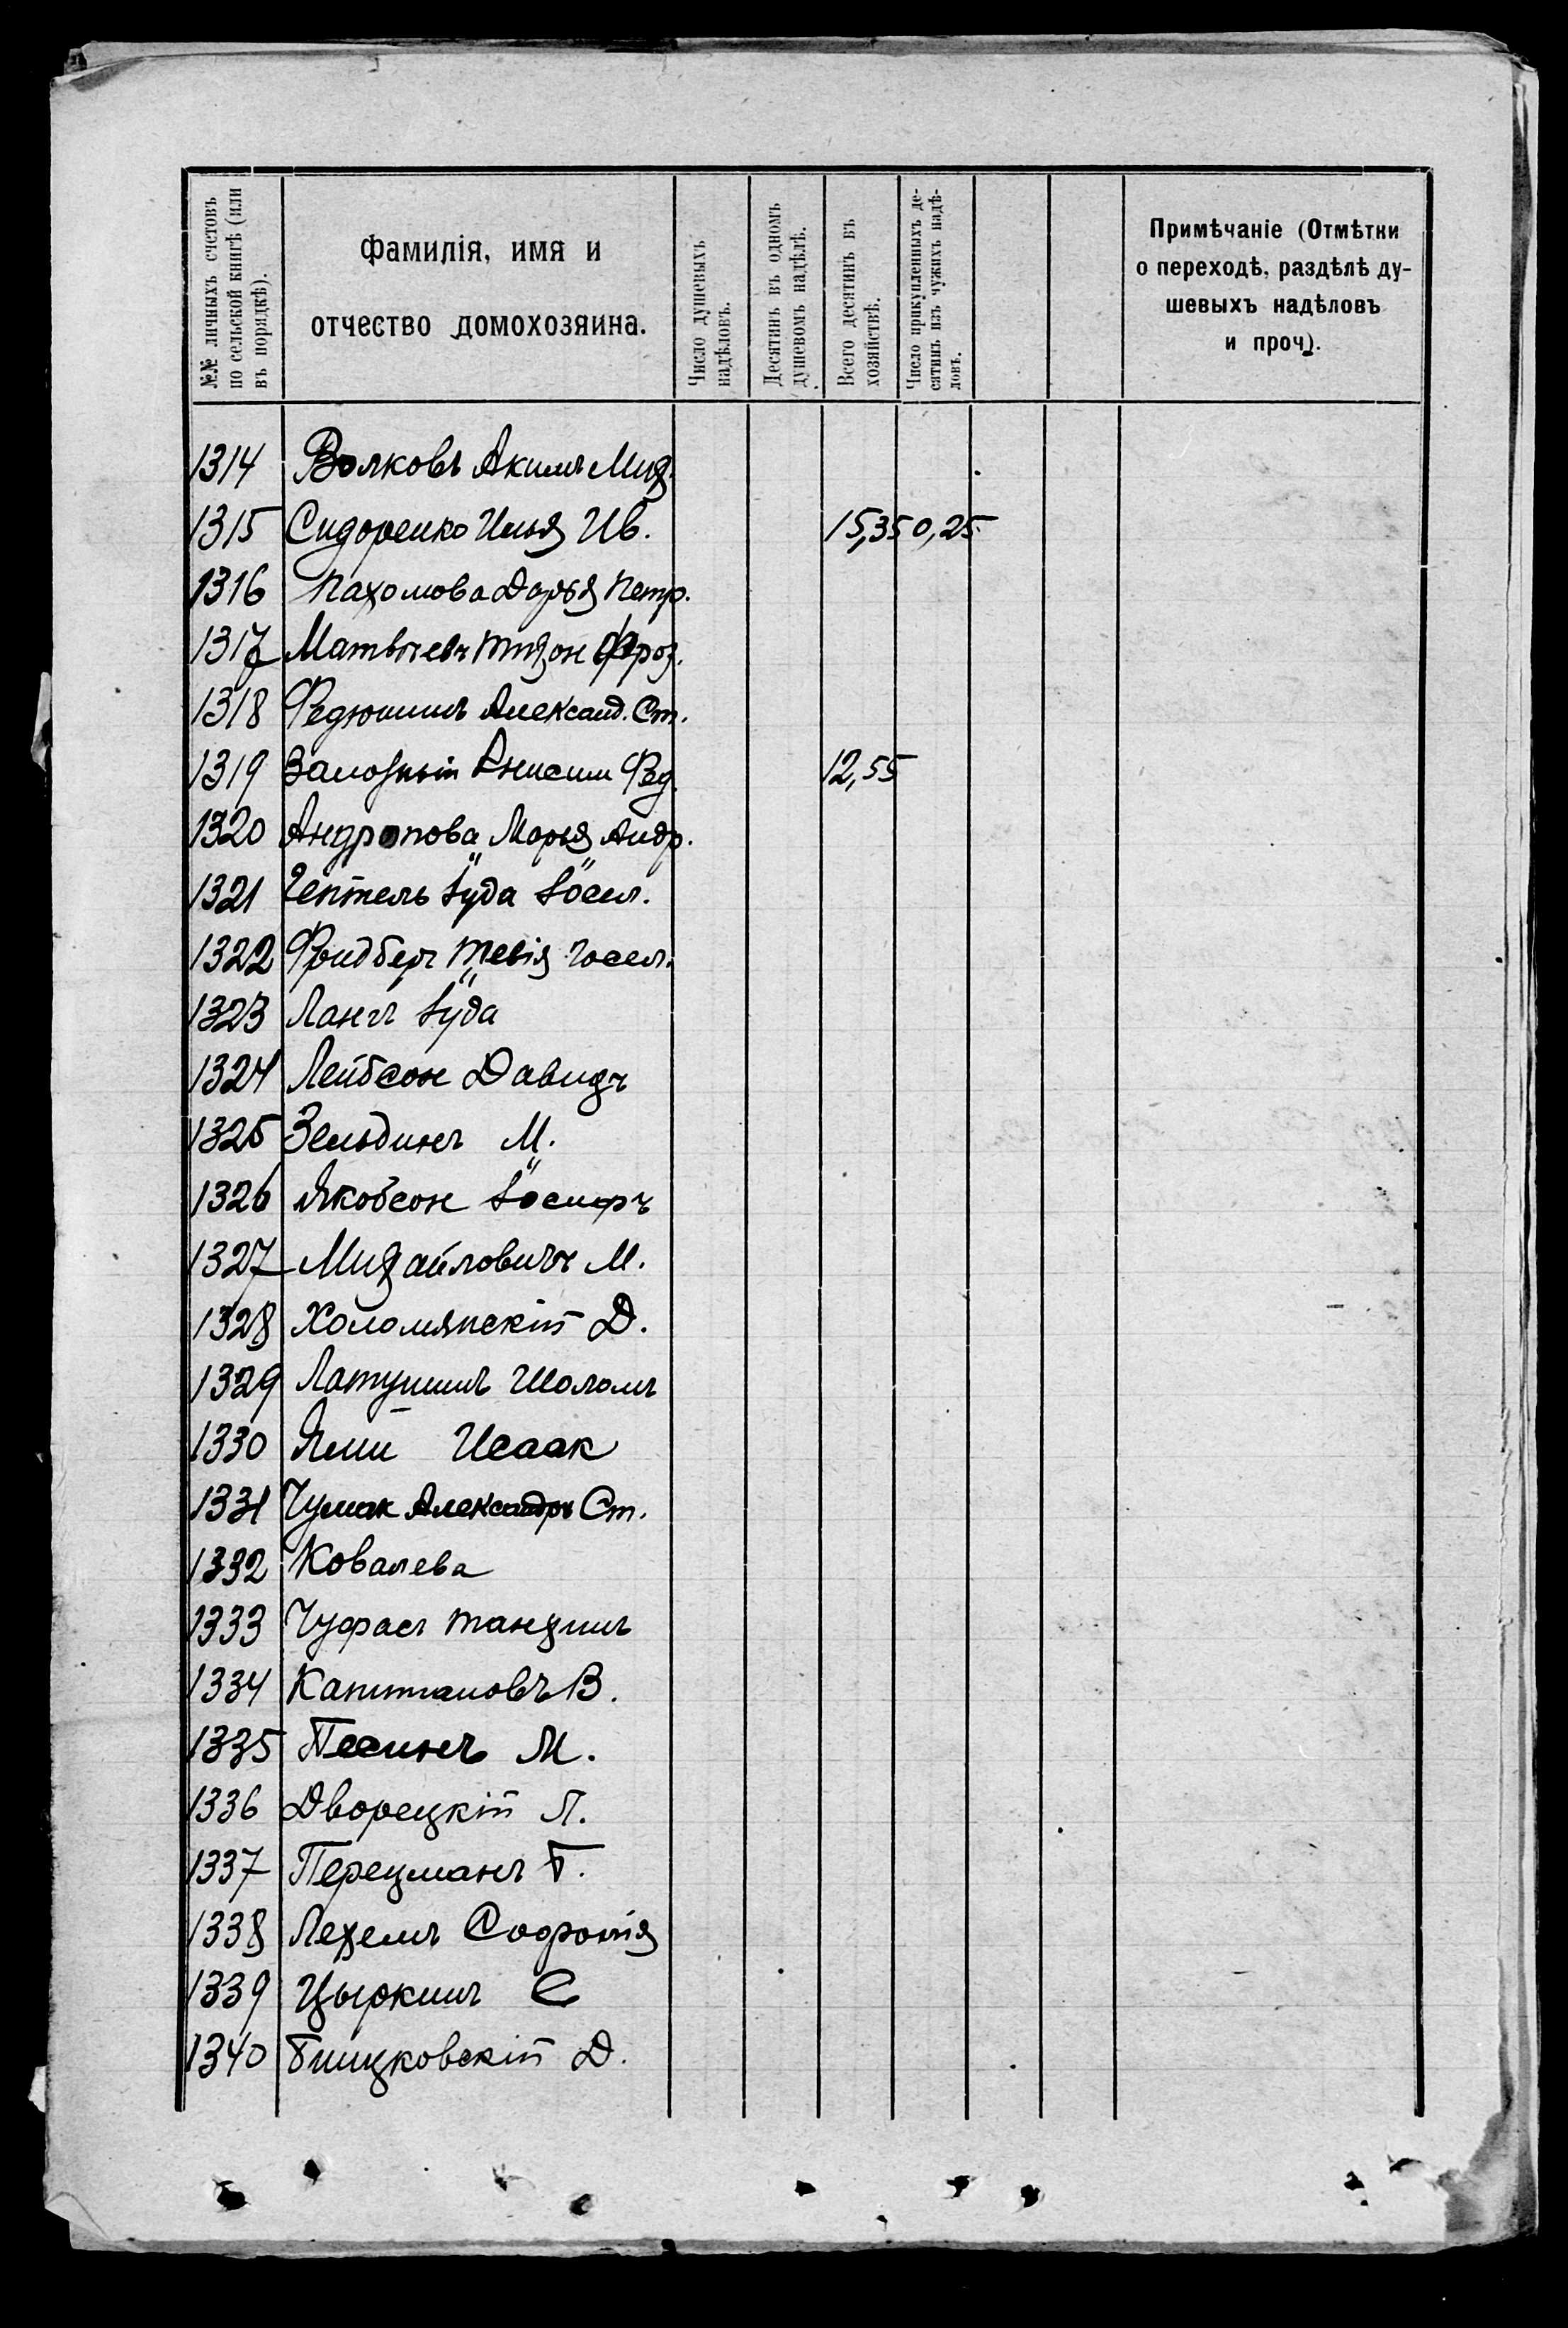 №№ личныхъ счетовъ по сельской книгѣ (или въ порядкѣ).
Фамилія, имя и
отчество домохозяина.
Число душевыхъ надѣловъ.
Десятинъ въ одномъ душевомъ надѣлѣ.
Всего десятинъ въ хозяйствѣ.
Число прикупленныхъ десятинъ изъ чужихъ надѣловъ.
Примѣчаніе (Отмѣтки
о переходѣ, раздѣлѣ ду-
шевыхъ надѣловъ
и проч).
1314 Волковъ Акимъ Мих.
1315 Сидоренко Илья Ив. 15,35 0,25
1316 Пахомова Дарья Петр.
1317 Матвѣевъ Тихон
1318 Федюшинъ Александ. Ст.
1319 Залозный Анисим Фед. 12,55
1320 Андропова Марья Андр.
1321 Іуда Іосел.
1322 Фридберг Тевія Іосел.
1323 Лангъ Іуда
1324 Лейбсон Давидъ
1325 Зельдинъ М.
1326 Якобсон Іосифъ
1327 Михайловичъ М.
1328 Холомянскій Д.
1329 Латушинъ Шоломъ
1330 Исаак
1331 Чумак Александръ Ст.
1332 Ковалева
1333 Чуфасъ Танхумъ
1334 Капштановъ В.
1335 Песинъ М.
1336 Дворецкій Л.
1337 Перецманъ Б.
1338 Лехемъ Софонія
1339 Цыркинъ С
1340 Д.